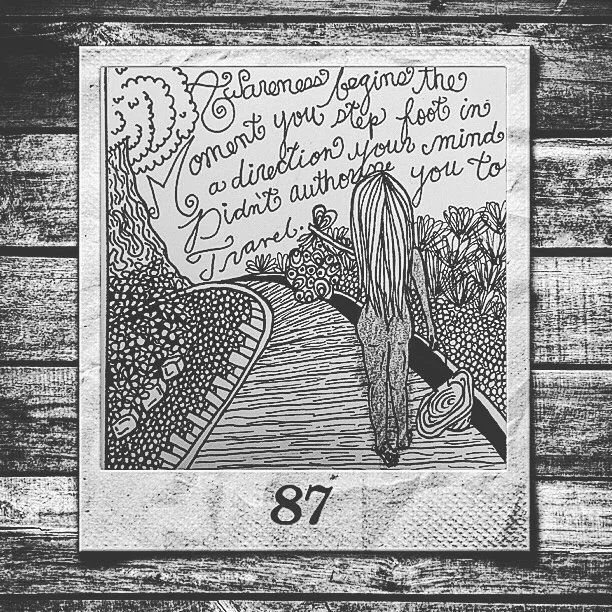 Awareness begins the
Moment you step foot in
a direction your mind
Didn't authorize you to
Travel.
87